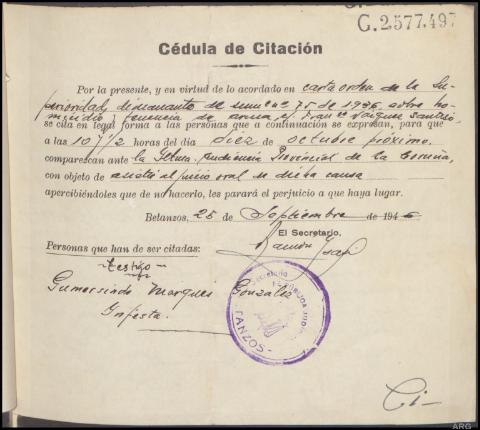 G.2.577.497
Cédula de Citación
Por la presente, y en virtud de lo acordado en carta orden de la Su-
perioridad, dimanante de sum. nº 75 de 1936, sobre ho-
micidio y tenencia de arma, c/ Franco Vázquez
se cita en legal forma a las personas que a continuación se expresan, para que
a las 10 y 1/2 horas del día diez de octubre próximo.
comparezcan ante la Iltma. Audiencia Provincial de la Coruña,
con objeto de asistir al juicio oral de dicha causa
apercibiéndoles que de no hacerlo, les parará el perjuicio a que haya lugar.
Betanzos, 25 de Septiembre de 1946
El Secretario,
Ramón
Personas que han de ser citadas:
Testigo
Gumersindo Marques Gonzalez
Infesta.
Secretaría
TANZOS
Ci-
ARG